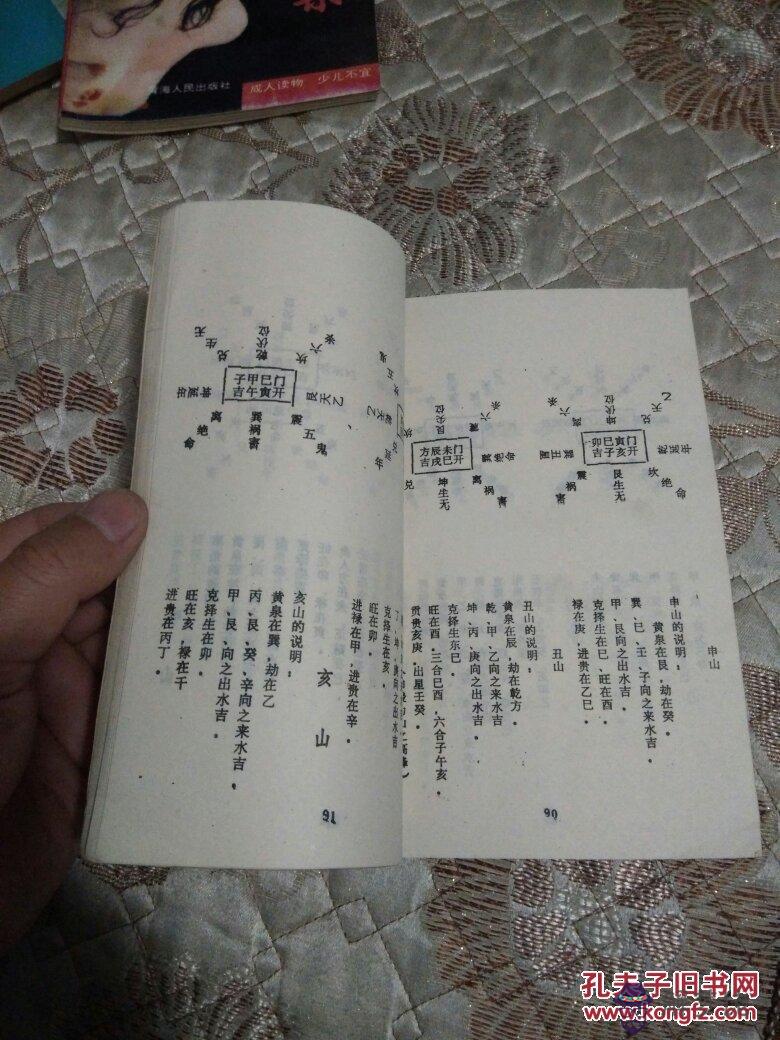 海人民出版社
成人读物 少儿不宜
申山
申山的说明：
黄泉在艮，劫在癸。
巽、巳、壬、子向之来水吉。
甲、艮向之出水吉。
克择生在巳、旺在酉。
禄在庚，进贵在乙巳。
丑山
丑山的说明：
黄泉在辰，劫在乾方。
乾、甲、乙向之来水吉。
坤、丙、庚向之出水吉。
克择生东巳。
旺在酉。三合巳酉，六合子午亥。
贡贵亥庚，出星壬癸。
卯巳寅门
吉子亥开
坤伏位
六杀
兑天乙
震祸害
艮生无
坎绝命
方辰未门
吉戌巳开
坤生无
离祸害
兑
90
克择生在亥。
旺在卯。
进禄在甲，进贵在辛。
亥山
亥山的说明：
黄泉在巽，劫在乙
丙、艮、癸、辛向之来水吉。
甲、艮、向之出水吉。
克择生在卯。
旺在亥，禄在千
进贵在丙丁。
子甲巳门
吉午寅开
乾伏位
坎六杀
兑生无
艮天乙
离绝命
巽祸害
震五鬼
91
孔夫子旧书网
www.kongfz.com